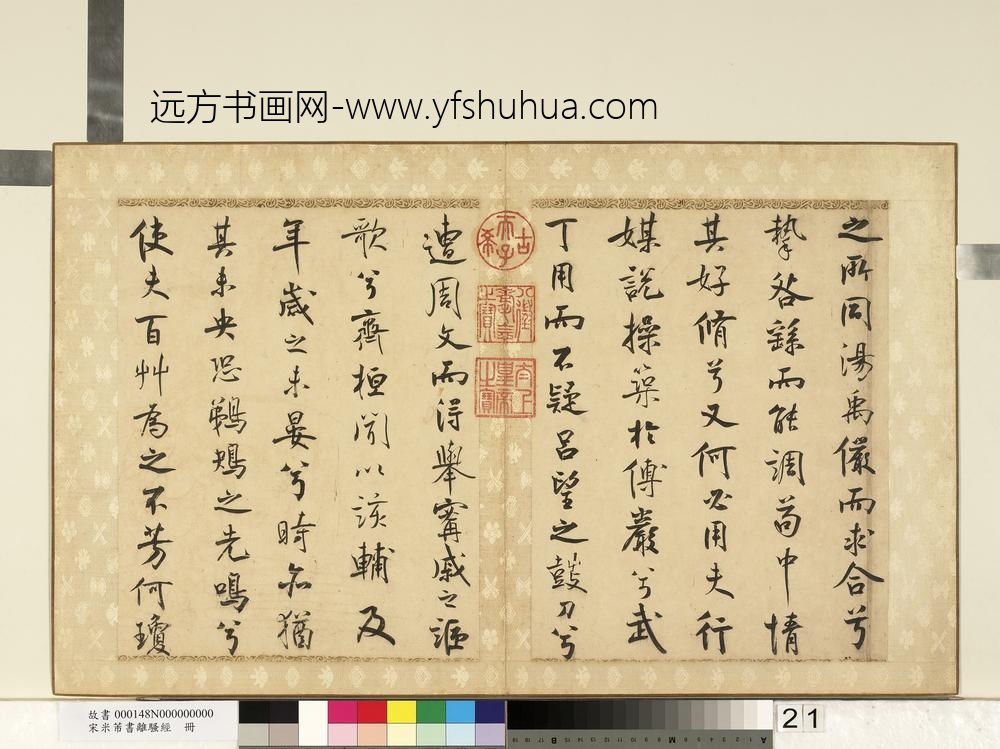 远方书画网-www.yfshuhua.com
之所同湯禹儼而求合兮
摯咎繇而能調苟中情
其好脩兮又何必用夫行
媒說操築於傅巖兮武
丁用而不疑呂望之鼓刀兮
遭周文而得舉甯戚之謳
歌兮齊桓聞以該輔及
年歲之未晏兮時亦猶
其未央恐鵜鴂之先鳴兮
使夫百艸為之不芳何瓊
古希天子
八徵耄念之寶
太上皇帝之寶
故書 000148N000000000
宋米芾書離騷經 冊
21